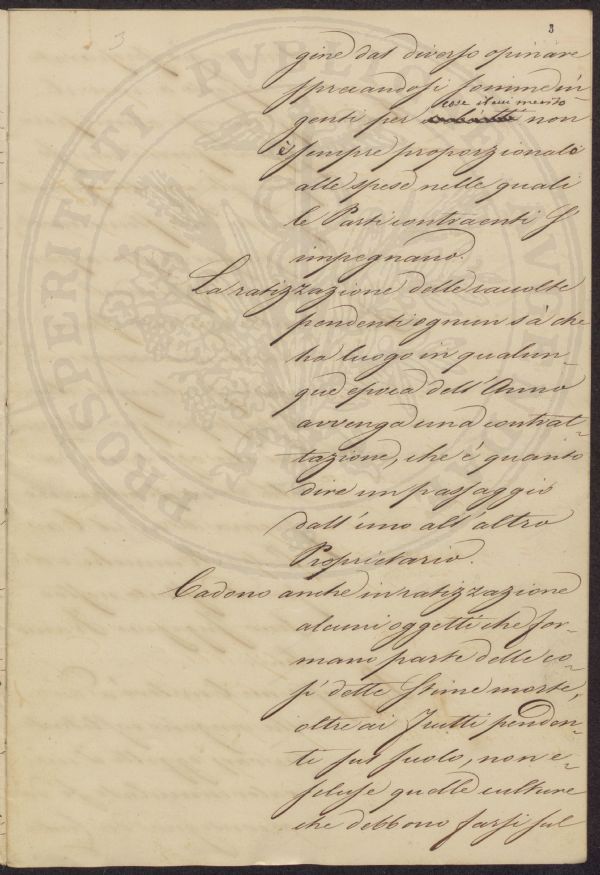 3
3
gine dal diverso opinare
sprecandosi somme in
genti per cose il cui mento non
è sempre proporzionale
alle spese nelle quali
le Parti contraenti s'
impegnano.
La ratizzazione delle raccolte
pendenti ognun sà che
ha luogo in qualun-
que epoca dell'Anno
avvenga una contrat-
tazione, che è quanto
dire un passaggio
dall'uno all'altro
Proprietario.
Cadono anche in ratizzazione
alcuni oggetti che for-
mano parte delle co-
sì dette Stime morte,
oltre ai Frutti penden-
ti sul suolo, non e-
scluse quelle culture
che debbono farsi sul
PROSPERITATI PVBLICAE